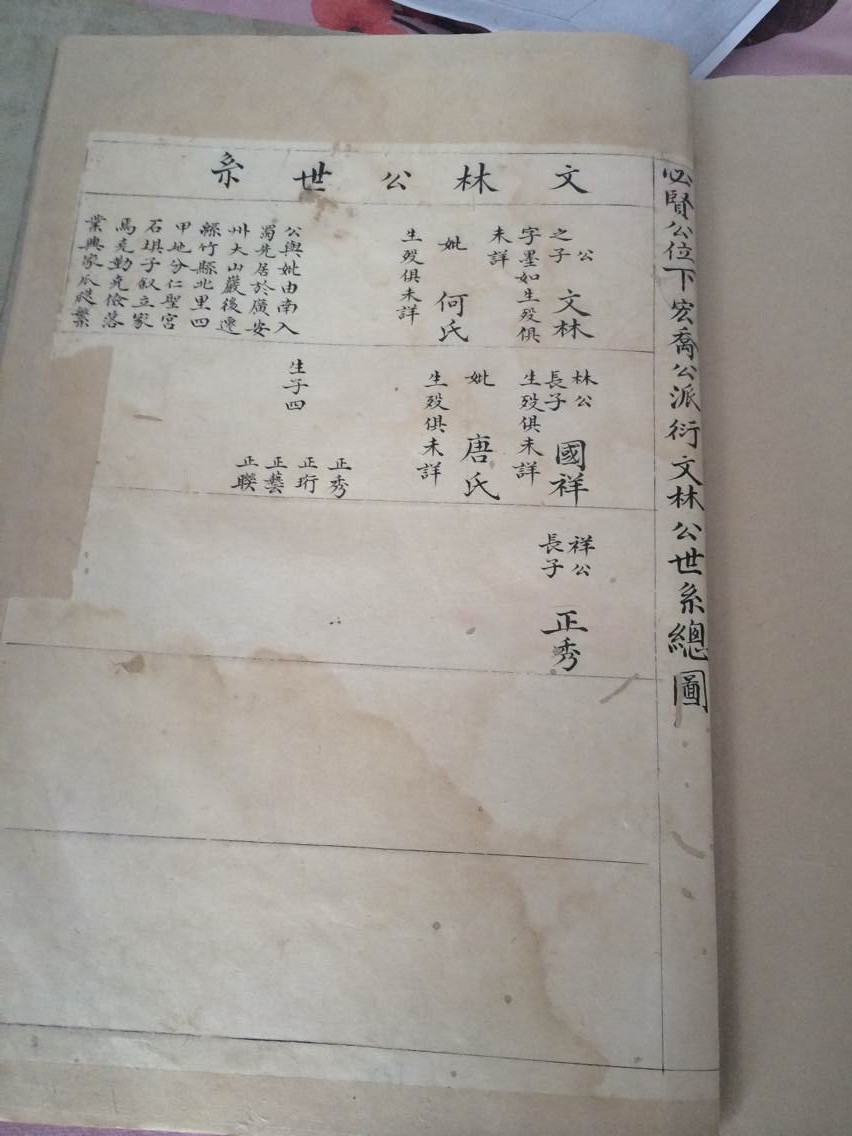 必賢公位下宏喬公派衍文林公世系總圖
文林公世系
公
之子
文林
字墨如生殁俱
未詳
妣
何氏
生殁俱未詳
公與妣由南入
蜀先居於廣安
州大山巖後遷
縣竹縣北里四
甲地分仁聖宮
石埧子叙立家
馬克勤克儉落
業興家瓜瓞繁
林公
長子
國祥
生殁俱未詳
妣
唐氏
生殁俱未詳
生子四
正秀
正珩
正藝
正聯
祥公
長子
正秀